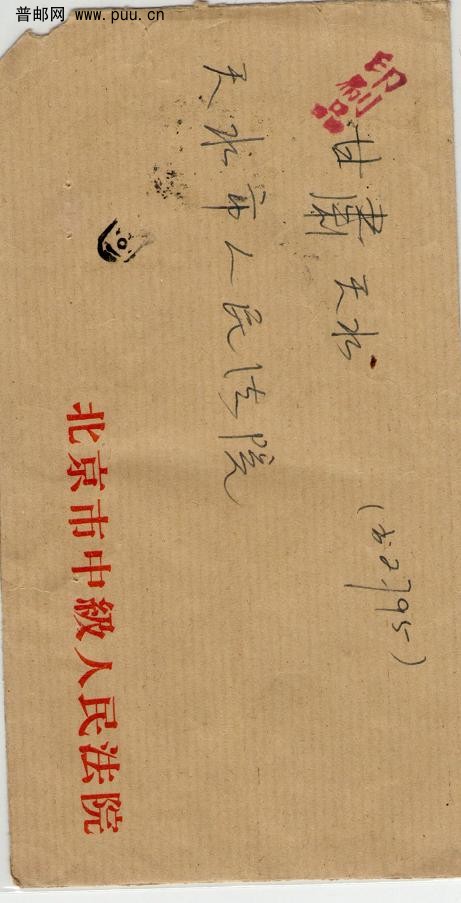 普邮网 www.puu.cn
印刷品
甘肅天水
天水市人民法院
2795
北京市中級人民法院